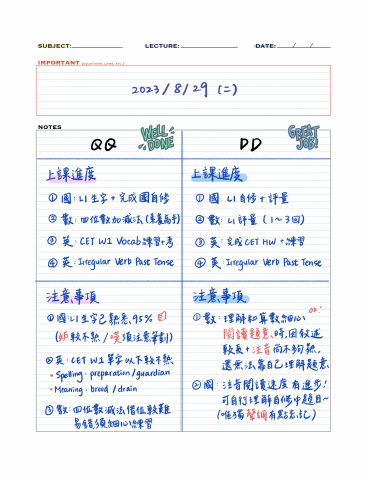 SUBJECT: LECTURE: DATE: / /
IMPORTANT (EQUATIONS, LAWS, ETC.)
2023/8/29 (二)
NOTES
QQ
WELL DONE
上課進度
① 國: L1 生字 + 完成國自修
② 數: 四位數加減法 (素養高手)
③ 英: CET W1 Vocab 練習+考
④ 英: Irregular Verb Past Tense
注意事項
① 國: L1 生字已熟悉 95%
較不熟 / 須注意筆劃)
② 英: CET W1 單字以下較不熟
• Spelling: preparation/guardian
• Meaning: brood / drain
③ 數: 四位數減法借位較難
易錯須細心練習
DD
GREAT JOB!
上課進度
① 國: L1 自修 + 評量
② 數: L1 評量 (1~3回)
③ 英: 完成 CET HW + 練習
④ 英: Irregular Verb Past Tense
注意事項
OK!
① 數: 理解和算數細心
閱讀題意時,因敘述
較長 + 注音尚不夠熟,
還無法靠自己理解題意
② 國: 注音閱讀速度有進步!
可自行理解自修中題目~
(唯獨聲調有點忘記)